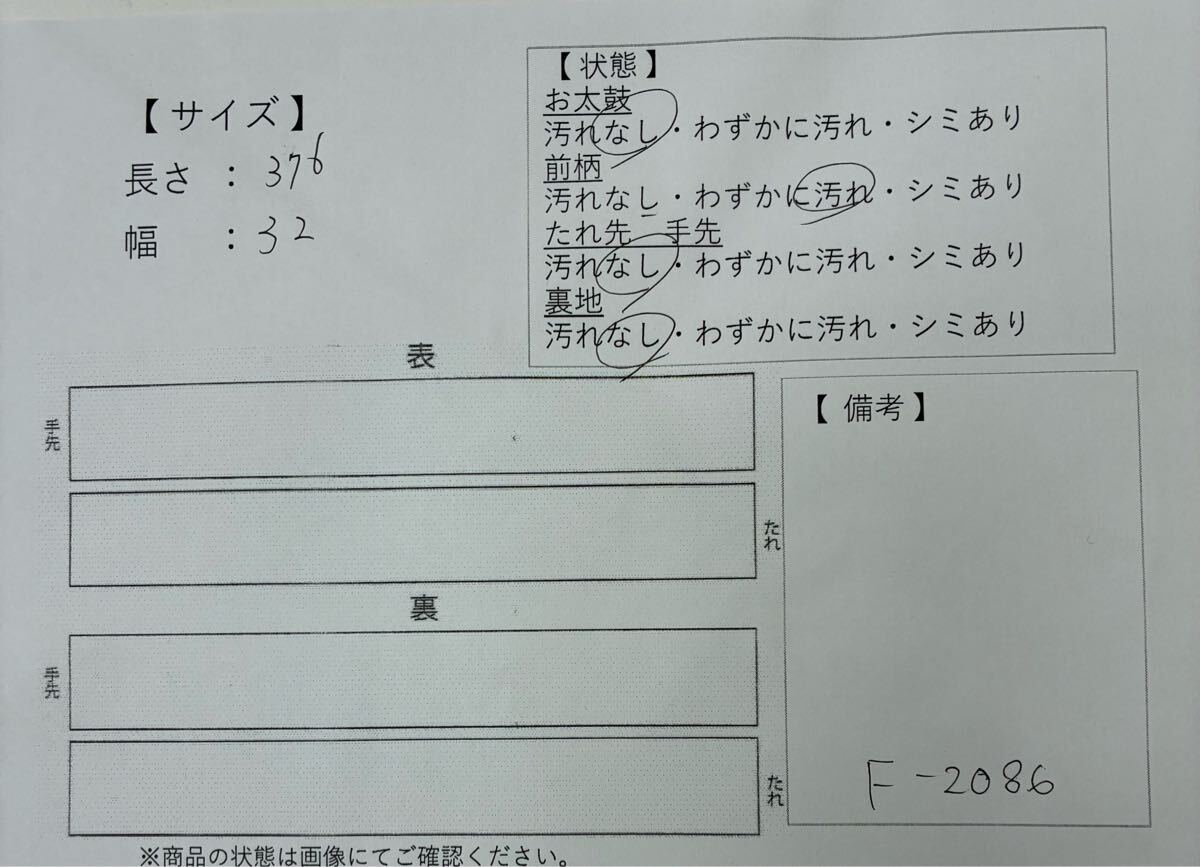 【 サイズ 】
長さ ： 376
幅 ： 32
【 状態 】
お太鼓
汚れなし・わずかに汚れ・シミあり
前柄
汚れなし・わずかに汚れ・シミあり
たれ先 手先
汚れなし・わずかに汚れ・シミあり
裏地
汚れなし・わずかに汚れ・シミあり
表
手先
たれ
裏
手先
たれ
【 備考 】
F-2086
※商品の状態は画像にてご確認ください。